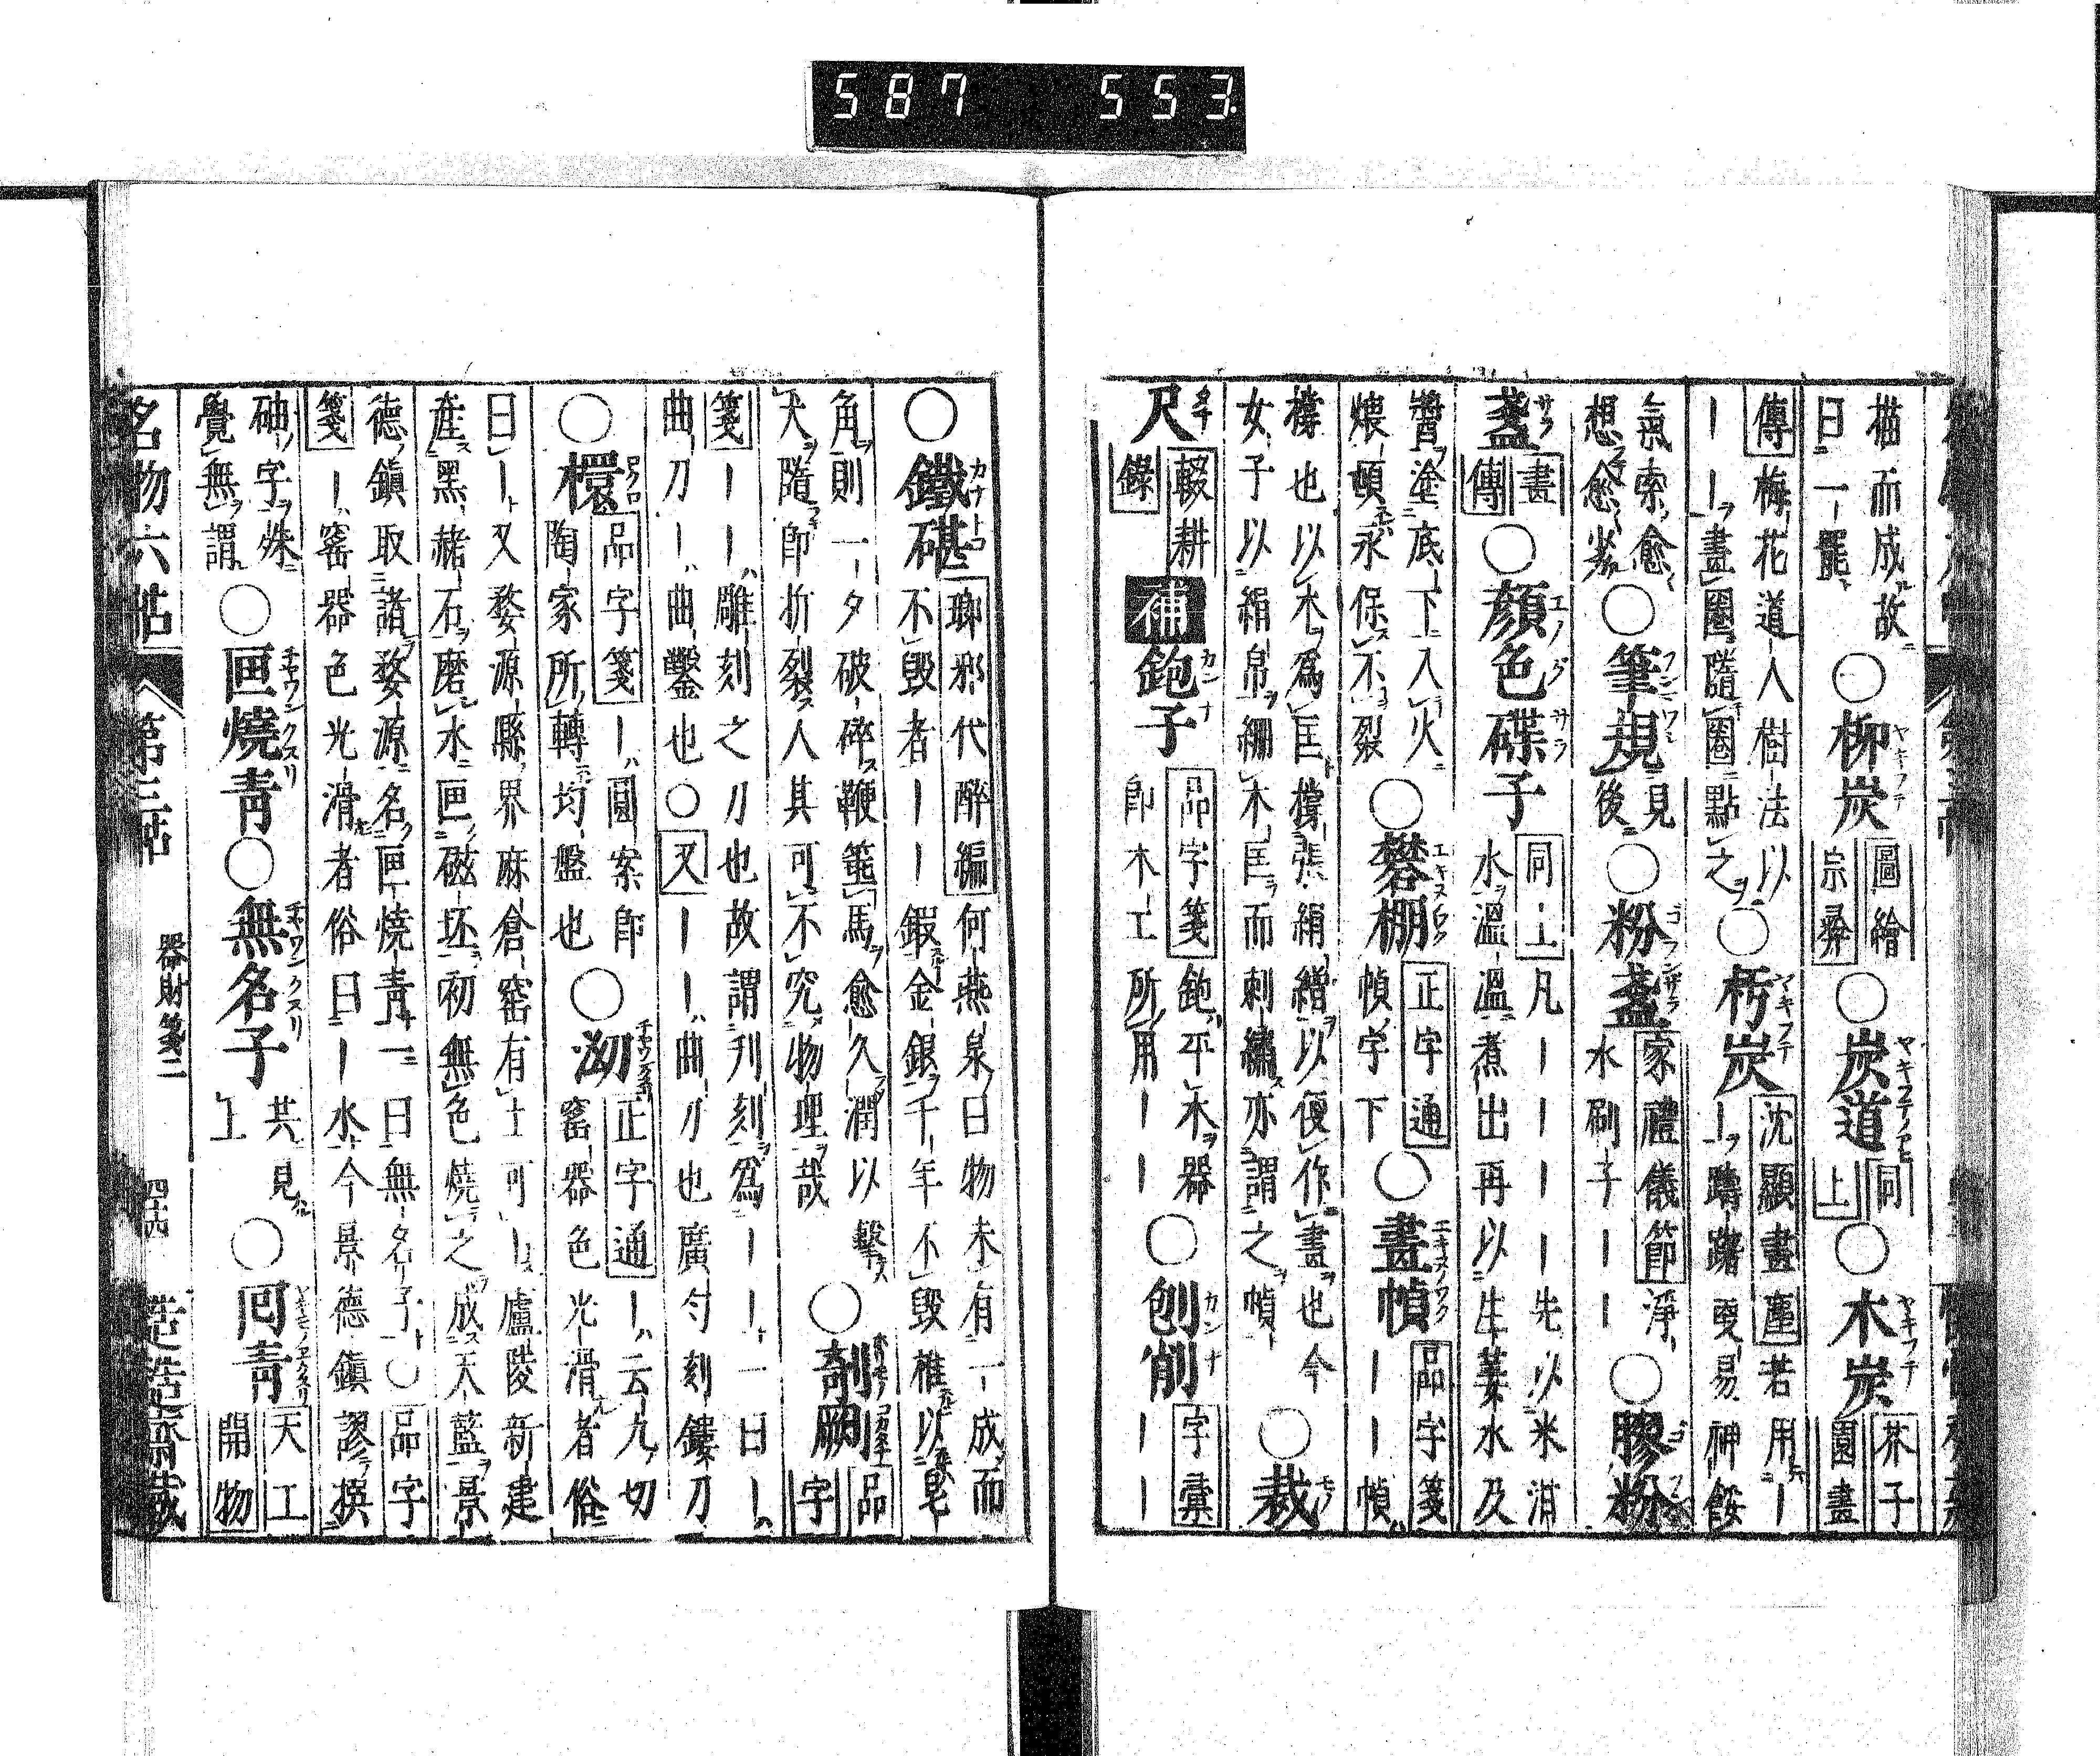 587 553.
描而成故
曰一罷○柳炭圖繪宗彝○炭道同上○木炭芥子園畫
傳梅花道人樹法以
｜｜畫圈隨圈點之○朽炭沈顥畫塵若用｜
｜躊躇更易神餒
氣索愈
想愈劣○筆規見後○粉盞家禮儀節淨水刷子｜｜○膠粉
盞畫傳○顏色碟子同上凡｜｜｜｜先以米泔
水溫溫煮出再以生薑水及
醬塗底下入火
煨頓永保不裂○礬棚正字通幀字下○畫幀品字箋｜｜幀
橕也以木爲匡橕張絹繒以便作畫也今
女子以絹帛綳木匡而刺繡亦謂之幀○裁
尺輟耕錄 補鉋子品字箋鉋平木器
卽木工所用｜｜○刨削字彙｜｜
○鐵碪瑯邪代醉編何燕泉曰物未有一成而
不毀者｜｜鍜金銀千年不毀椎以皂
角則一夕破碎鞭箠馬愈久潤以擊
犬隨卽折裂人其可不究物理哉○剞劂品字
箋｜｜雕刻之刀也故謂刋刻爲｜｜一曰｜
曲刀｜曲鑿也○又｜｜曲刀也廣匀刻鏤刀
○檈品字箋｜圓案卽
陶家所轉均盤也○沏正字通｜云九切
窰器色光滑者俗
曰｜又婺源縣界麻倉窰有土可｜廬陵新建
產黑赭石磨水画磁坯初無色燒之成天藍景
德鎮取諸婺源名画燒青一曰無名子○品字
箋｜窰器色光滑者俗曰｜水今景德鎮謬撰
䂈字殊
覺無謂○画燒青○無名子共見上○囘青天工開物
名物六帖 第三帖 器財箋二 四十六